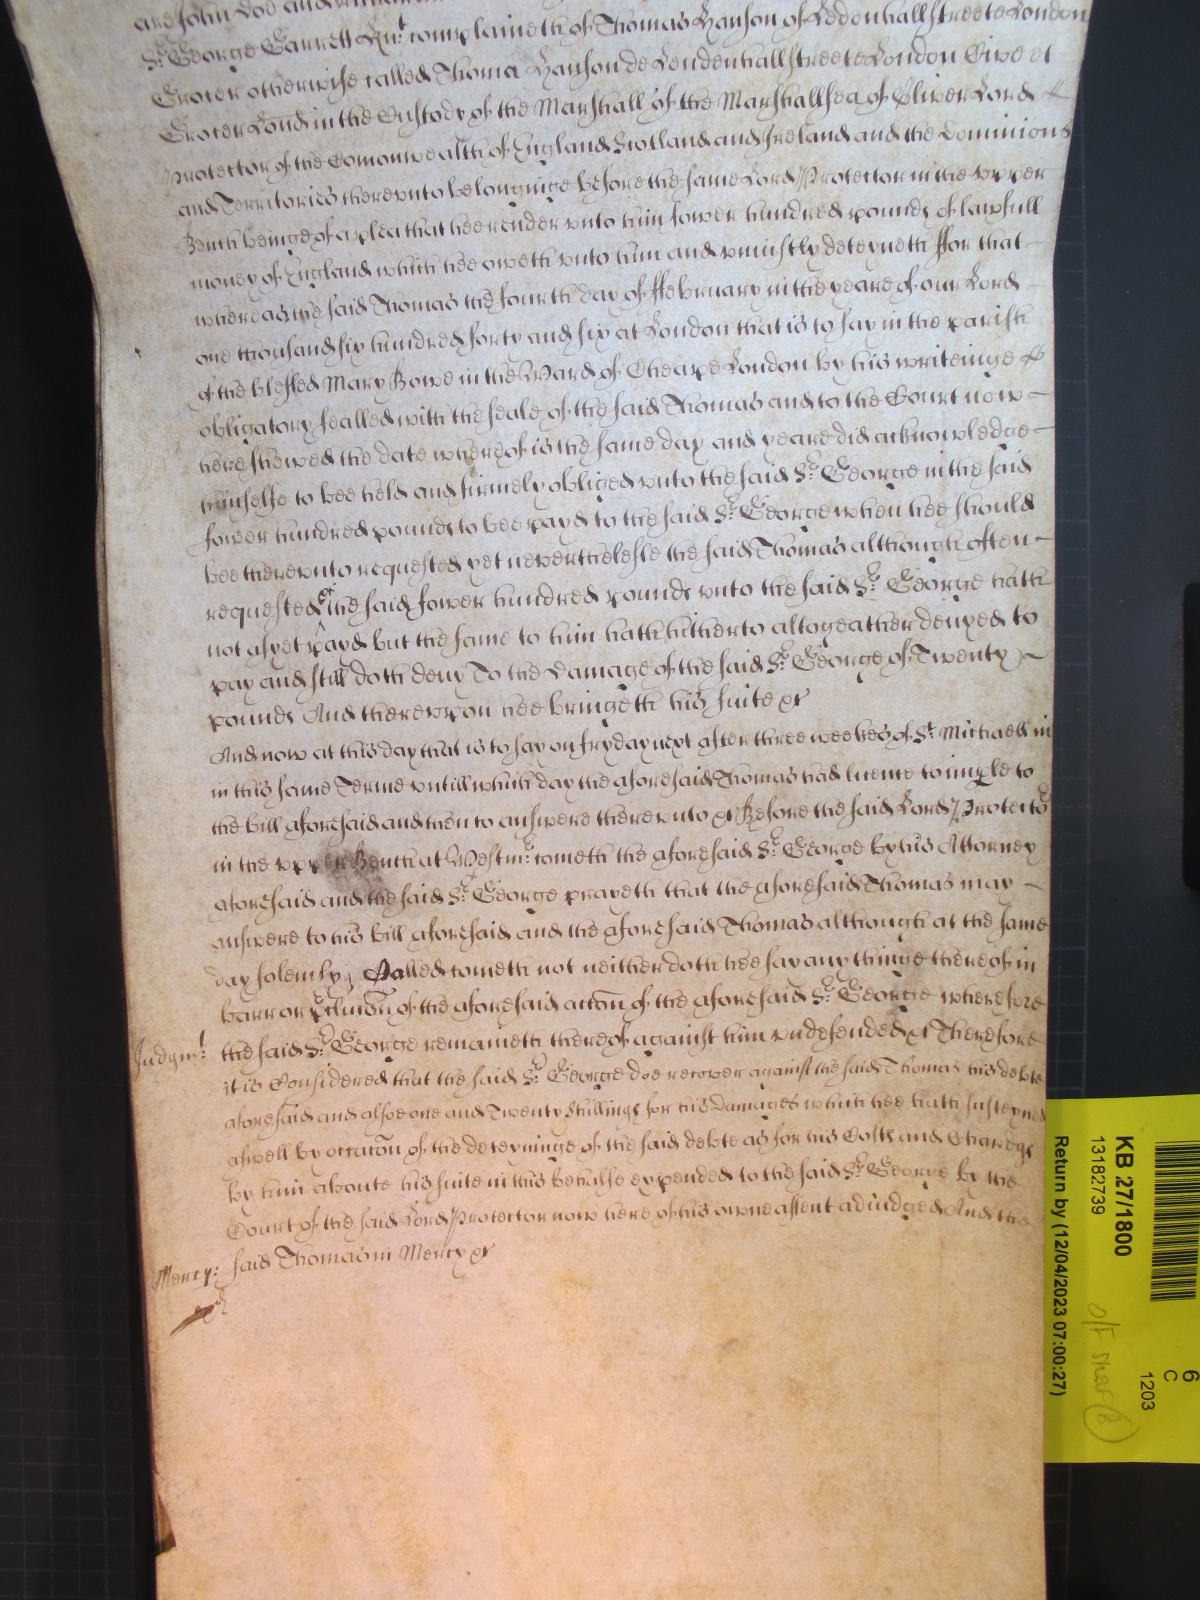 and John Doe and
Sr. George Garrett Knt. complaineth of Thomas Hanson of Ledenhallstreete London
Grocer otherwise called Thoma Hanson de Leudenhallstreete London Cive et
Grocer Lond in the Custody of the Marshall of the Marshallsea of Oliver Lord
Protector of the Comonwealth of England Scotland and Ireland and the dominions
and Territories thereunto belonginge before the same Lord Protector in the upper
Bench beinge of a plea that hee render unto him fower hundred pounds of lawfull
money of England which hee oweth unto him and uniustly deteyneth ffor that
whereas the said Thomas the fourth day of ffebruary in the yeare of our Lord
one thousand six hundred forty and six at London that is to say in the parish
of the blessed Mary Bowe in the Ward of Cheape London by his writeinge
obligatory sealled with the seale of the said Thomas and to the Court now
here shewed the date whereof is the same day and yeare did acknowledge
himselfe to bee held and firmely obliged unto the said Sr. George in the said
fower hundred pounds to bee payd to the said Sr. George when hee should
bee thereunto requested yet neverthelesse the said Thomas although often
requested &c the said fower hundred pounds unto the said Sr. George hath
not as yet payd but the same to him hath hitherto altogeather denyed to
pay and still doth deny To the damage of the said Sr. George of Twenty
pounds And thereuppon hee bringeth his suite &c
And now at this day that is to say on fryday next after three weekes of St. Michaell in
in this same Terme untill which day the aforesaid Thomas had licence to imple to
the bill aforesaid and then to answere thereunto &c Before the said Lord Protector
in the upper Bench at Westmr. cometh the aforesaid Sr. George by his Attorney
aforesaid and the said Sr. George prayeth that the aforesaid Thomas may
answere to his bill aforesaid and the aforesaid Thomas although at the same
day solemly Called cometh not neither doth hee say any thinge thereof in
barr or pclusion of the aforesaid accon of the aforesaid Sr. George wherefore
Judgmt: the said Sr. George remaineth thereof against him undefended &c Therefore
it is Considered that the said Sr. George doe recover against the said Thomas his debte
aforesaid and alsoe one and Twenty Shillings for his damages which hee hath susteyned
aswell by occacon of the deteyninge of the said debte as for his Costs and Chardges
by him aboute his suite in this behalfe expended to the said Sr. George by the
Court of the said Lord Protector now here of his owne assent adiudged And the
Mercy: said Thomas in Mercy &c
KB 27/1800
13182739
Return by (12/04/2023 07:00:27)
6
C
1203